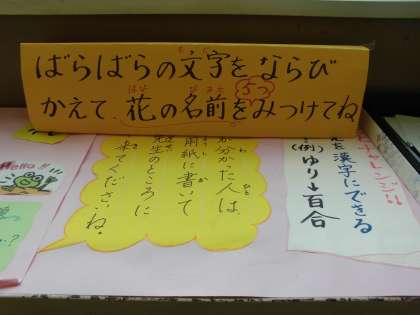 ばらばらの文字をならび
かえて、花の名前を5つみつけてね
が分かった人は、
用紙に書いて
先生のところに
来てくださいね。
チャレンジ!!
を漢字にできる
(例)ゆり→百合
Hello!!